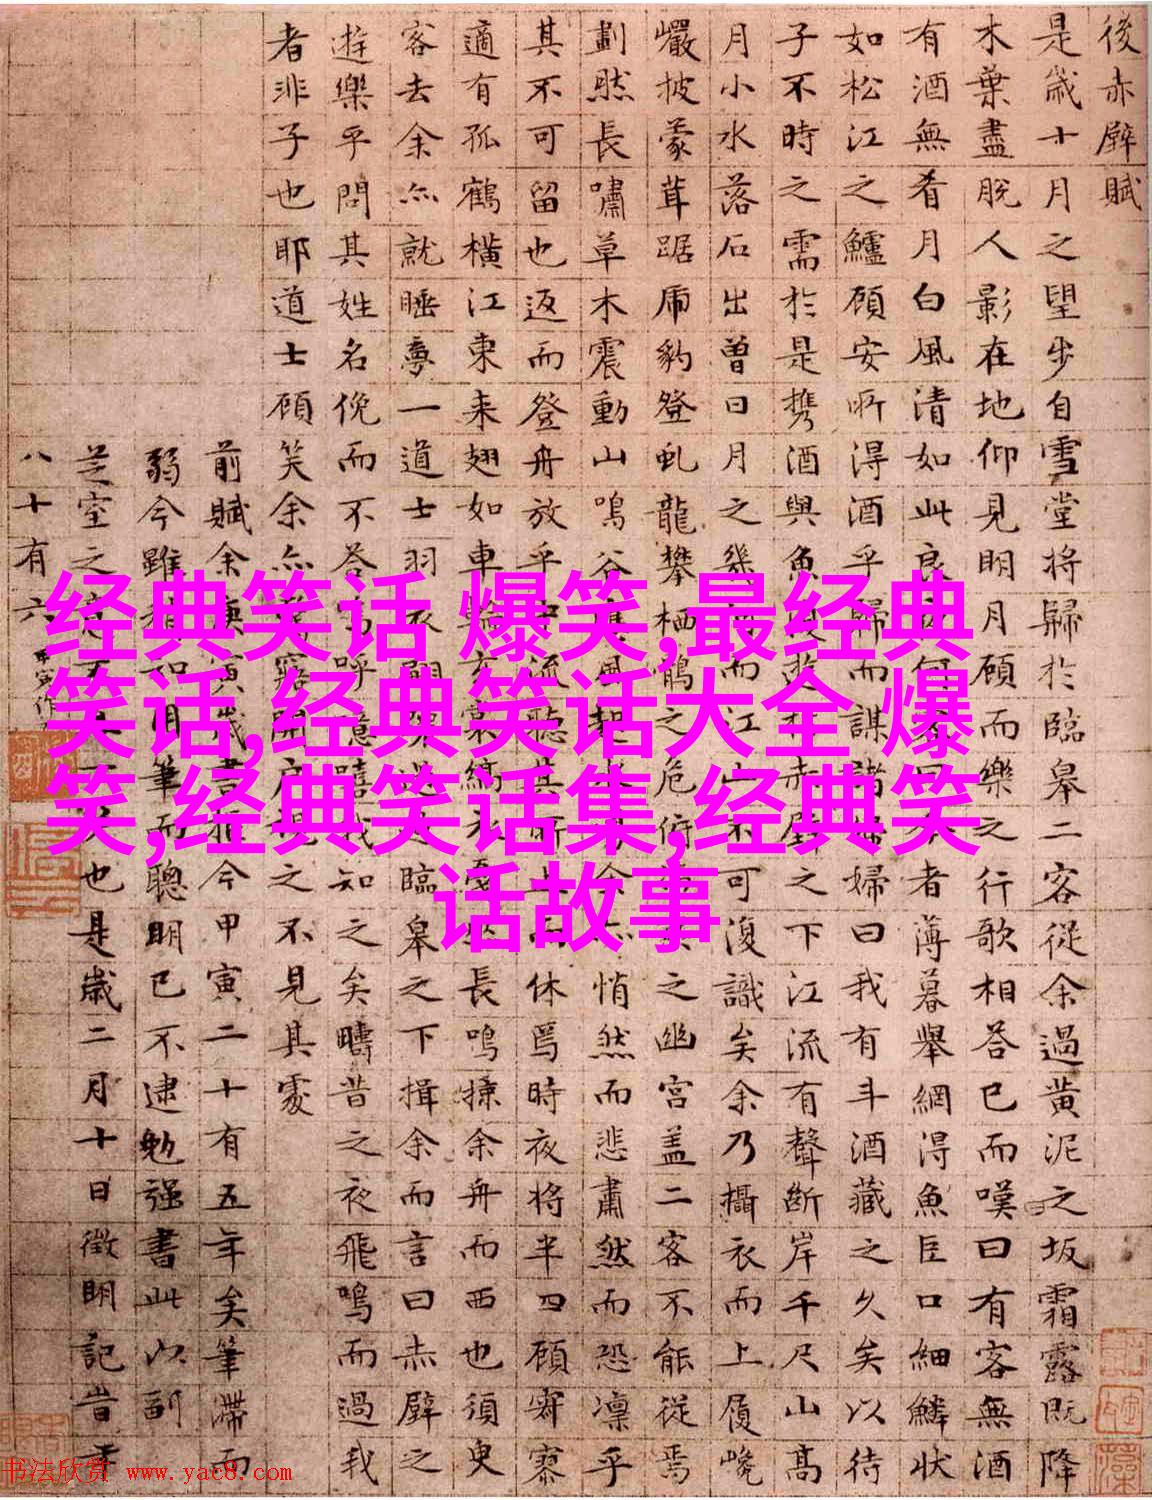 後赤壁賦
是歲十月之望步自雪堂將歸於臨皋二客從余過黃泥之坂霜露既降
木葉盡脫人影在地仰見明月顧而樂之行歌相荅已而嘆曰有客無酒
有酒無肴月白風清如此良何者薄暮舉網得魚巨口細鱗狀
如松江之鱸顧安所得酒乎歸而謀諸婦婦曰我有斗酒藏之久矣以待
子不時之需於是携酒與魚復遊於赤壁之下江流有聲斷岸千尺山高
月小水落石出曾日月之幾何而江山不可復識矣余乃攝衣而上履巉
巖披蒙茸踞虎豹登虬龍攀栖鶻之危俯之幽宮盖二客不能從焉
劃然長嘯草木震動山鳴谷應風起水余亦悄然而悲肅然而恐凜乎
其不可留也返而登舟放乎中流聽其所止而休焉時夜將半四顧寂寥
適有孤鶴橫江東来翅如車輪玄裳縞衣戛然長鳴掠余舟而西也須臾
客去余亦就睡夢一道士羽衣翩過臨皋之下揖余而言曰赤壁之
遊樂乎問其姓名俛而不答嗚呼噫嘻我知之矣疇昔之夜飛鳴而過我
者非子也耶道士顧笑余亦驚寤開户視之不見其處
前賦余庚寅歲書抵今甲寅二十有五年矣筆滯而
弱今雖稍知用筆而聰明已不逮勉强書此以副
芝室之意不也是歲二月十日徵明記昔年
八十有六
经典笑话 爆笑,最经典
笑话,经典笑话大全 爆
笑,经典笑话集,经典笑
话故事
书法欣赏 www.yac8.com